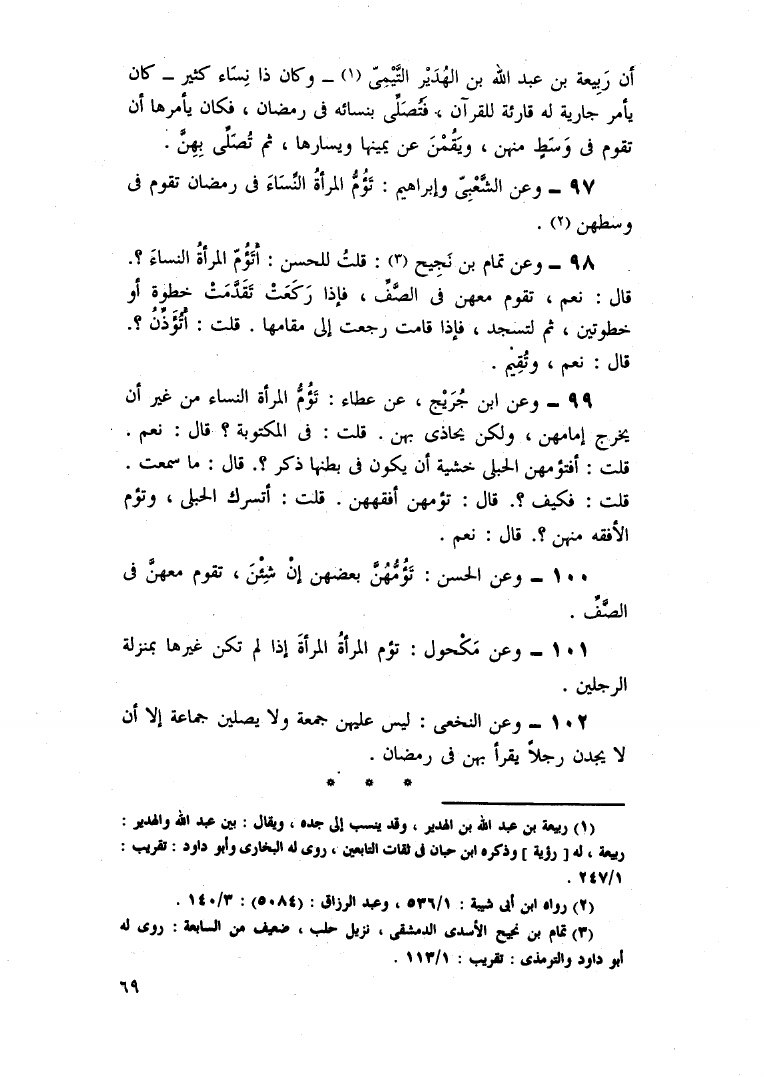 أن رَبِيعة بن عبد الله بن الهُدَيْرِ التَّيْمِىّ (١) – وكان ذا نِسَاء كثير – كان
يأمر جارية له قارئة للقرآن ، فَتُصَلِّى بنسائه فى رمضان ، فكان يأمرها أن
تقوم فى وَسَطٍ منهن ، ويَقُمْنَ عن يمينها ويسارها ، ثم تُصَلِّى بِهِنَّ .
٩٧ – وعن الشَّعْبِىّ وإبراهيم : تَؤُمُّ المرأةُ النِّسَاءَ فى رمضان تقوم فى
وسطهن (٢) .
٩٨ – وعن تمام بن نَجِيح (٣) : قلتُ للحسن : أَتَؤُمّ المرأةُ النساءَ ؟.
قال : نعم ، تقوم معهن فى الصَّفِّ ، فإذا رَكَعَتْ تَقَدَّمَتْ خطوة أو
خطوتين ، ثم لتسجد ، فإذا قامت رجعت إلى مقامها . قلت : أَتُؤَذِّنُ ؟.
قال : نعم ، وتُقِيْم .
٩٩ – وعن ابن جُرَيْج ، عن عطاء : تَؤُمُّ المرأة النساء من غير أن
يخرج إمامهن ، ولكن يحاذى بهن . قلت : فى المكتوبة ؟ قال : نعم .
قلت : أفتؤمهن الحبلى خشية أن يكون فى بطنها ذكر ؟. قال : ما سمعت .
قلت : فكيف ؟. قال : تؤمهن أفقههن . قلت : أتسرك الحبلى ، وتؤم
الأفقه منهن ؟. قال : نعم .
١٠٠ – وعن الحسن : تَؤُمُّهُنَّ بعضهن إنْ شِئْنَ ، تقوم معهنَّ فى
الصَّفِّ .
١٠١ – وعن مَكْحول : تؤم المرأةُ المرأةَ إذا لم تكن غيرها بمنزلة
الرجلين .
١٠٢ – وعن النخعى : ليس عليهن جمعة ولا يصلين جماعة إلا أن
لا يجدن رجلاً يقرأ بهن فى رمضان .
* * *
(١) ربيعة بن عبد الله بن الهدير ، وقد ينسب إلى جده ، ويقال : بين عبد الله والهدير :
ربيعة ، له [ رؤية ] وذكره ابن حبان فى ثقات التابعين ، روى له البخارى وأبو داود : تقريب :
٢٤٧/١ .
(٢) رواه ابن أبى شيبة : ٥٣٦/١ ، وعبد الرزاق : (٥٠٨٤) : ١٤٠/٣ .
(٣) تمام بن نجيح الأسدى الدمشقى ، نزيل حلب ، ضعيف من السابعة : روى له
أبو داود والترمذى : تقريب : ١١٣/١ .
٦٩